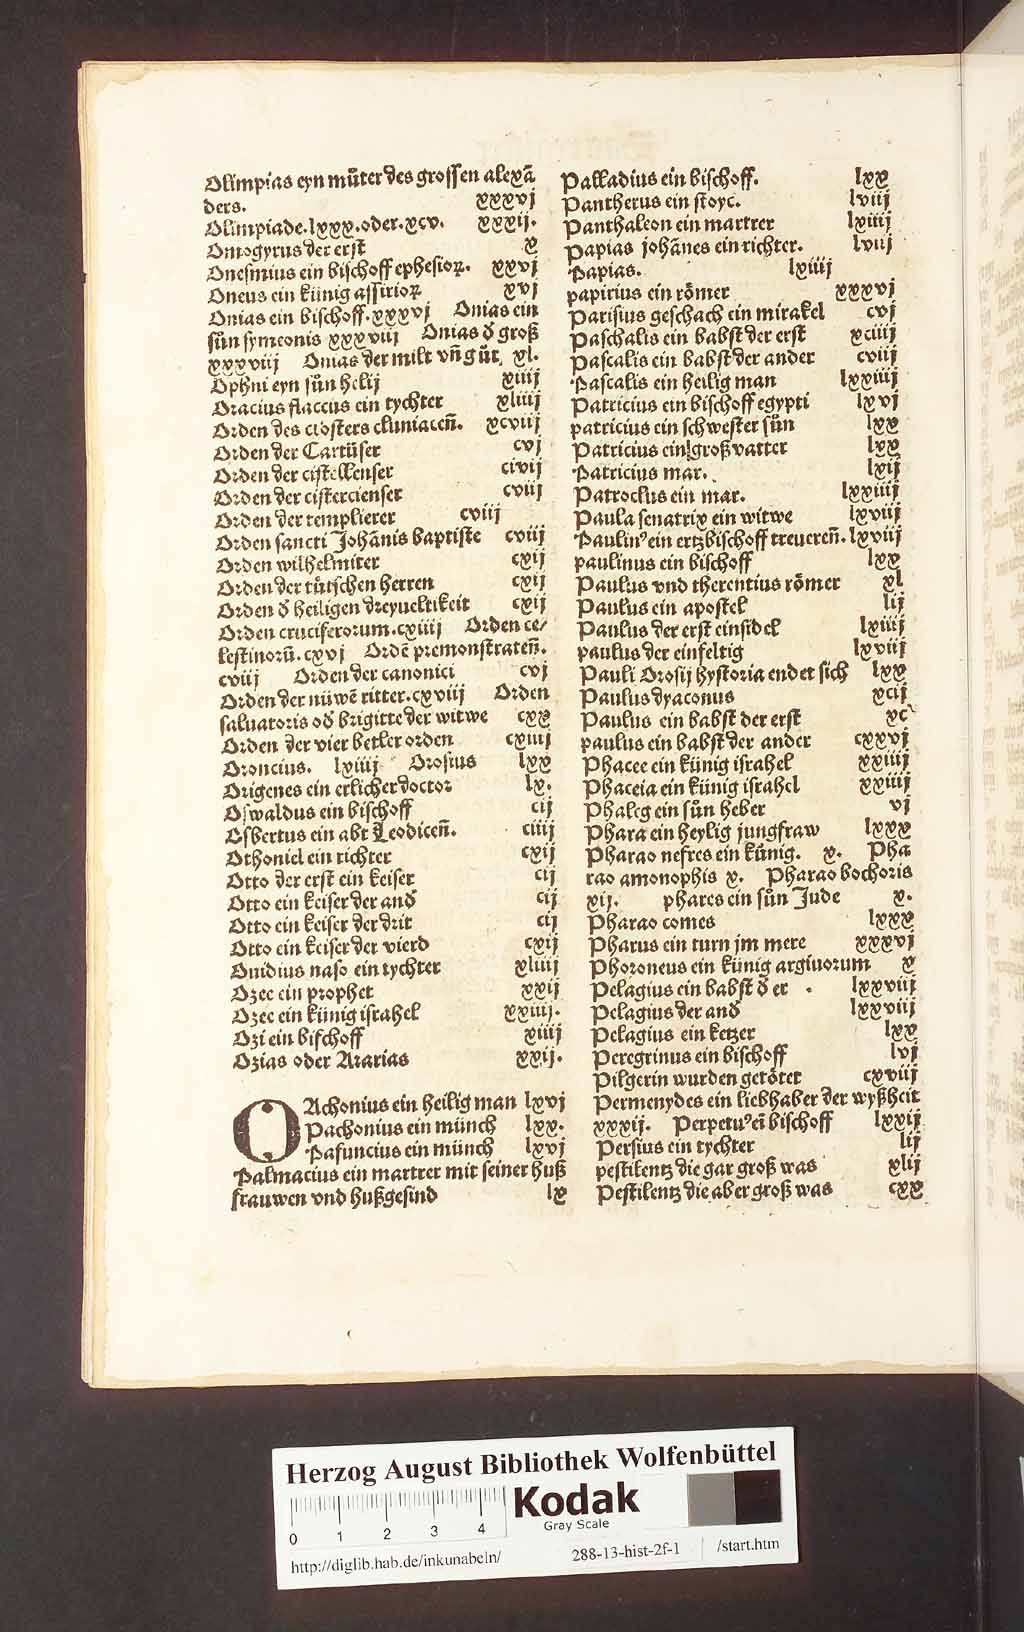 Olimpias eyn můter des grossen alexā
ders. xxxvj
Olimpiade.lxxx.oder.xcv. xxxij.
Omogyrus der erst x
Onesmius ein bischoff ephesioꝝ. xxvj
Oneus ein künig assirioꝝ xvj
Onias ein bischoff.xxxvj Onias ein
sůn symeonis xxxviij Onias ð groß
xxxviij Onias der milt vñ gůt xl.
Ophni eyn sůn helij xiiij
Oracius flaccus ein tychter xliiij
Orden des closters cluniaceñ. xcviij
Orden der Cartüser cvj
Orden der cistellenser civij
Orden der cistercienser cviij
Orden der templierer cviij
Orden sancti Johānis baptiste cviij
Orden wilhelmiter cxij
Orden der tütschen herren cxij
Orden ð heiligen dreyueltikeit cxij
Orden cruciferorum.cxiiij Orden ce/
lestinorū.cxvj Ordē premonstrateñ.
cviij Orden der canonici cvj
Orden der nüwē ritter.cxviij Orden
saluatoris oð brigitte der witwe cxx
Orden der vier betler orden cxiiij
Oroncius. lxiiij Orosius lxx
Origenes ein erlicher doctor lx.
Oswaldus ein bischoff cij
Osbertus ein abt Leodiceñ. ciiij
Othoniel ein richter cxij
Otto der erst ein keiser cij
Otto ein keiser der and cij
Otto ein keiser der drit cij
Otto ein keiser der vierd cxij
Ouidius naso ein tychter xliiij
Ozee ein prophet xxij
Ozee ein künig israhel xxiiij.
Ozi ein bischoff xiiij
Ozias oder Azarias xxij.
OAchonius ein heilig man lxvj
Pachonius ein münch lxx.
Pafuncius ein münch lxvj
Palmacius ein martrer mit seiner huß
frauwen vnd hußgesind lx
Palladius ein bischoff. lxx
Pantherus ein stoyc. lviij
Panthaleon ein martrer lxiiij
Papias johānes ein richter. lviij
Papias. lxiiij
papirius ein römer xxxvj
Parisius geschach ein mirakel cvj
Paschalis ein babst der erst xciiij
Pascalis ein babst der ander cviij
Pascalis ein heilig man lxxiiij
Patricius ein bischoff egypti lxvj
patricius ein schwester sůn lxx
Patricius ein groß vatter lxx
Patricius mar. lxij
Patroclus ein mar. lxxiiij
Paula senatrix ein witwe lxviij
Paulinꝰ ein ertzbischoff treuereñ. lxviij
paulinus ein bischoff lxx
Paulus vnd therentius römer xl
Paulus ein apostel lij
Paulus der erst einsidel lxiiij
paulus der einfeltig lxviij
Pauli Orosij hystoria endet sich lxx
Paulus dyaconus xcij
Paulus ein babst der erst xc
paulus ein babst der ander cxxvj
Phacee ein künig israhel xxiiij
Phaceia ein künig israhel xxiiij
Phaleg ein sůn heber vj
Phara ein heylig jungfraw lxxx
Pharao nefres ein künig. x. Pha
rao amonophis x. Pharao bochoris
xij. phares ein sůn Jude x.
Pharao comes lxxx
Pharus ein turn jm mere xxxvj
Phoroneus ein künig argiuorum x
Pelagius ein babst ð er . lxxviij
Pelagius der and lxxviij
Pelagius ein ketzer lxx
Peregrinus ein bischoff lvj
Pilgerin wurden getötet cxviij
Permenydes ein liebhaber der wyßheit
xxxij. Perpetuꝰ eī bischoff lxxij
Persius ein tychter lij
pestilentz die gar groß was xlij
Pestilentz die aber groß was cxx
Herzog August Bibliothek Wolfenbüttel
Kodak
Gray Scale
0 1 2 3 4
http://diglib.hab.de/inkunabeln/ 288-13-hist-2f-1 /start.htm